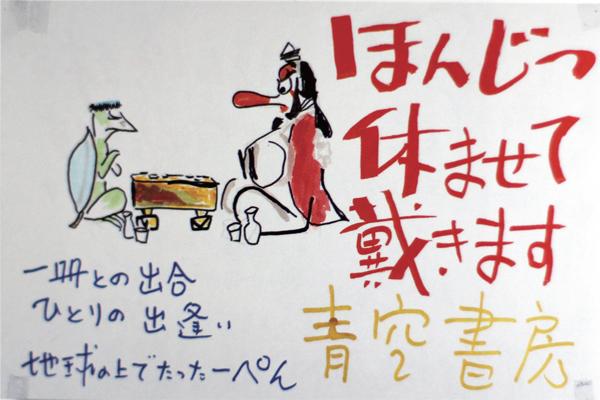 ほんじつ
休ませて
戴きます
青空書房
一冊との出合
ひとりの出逢い
地球の上でたった一ぺん